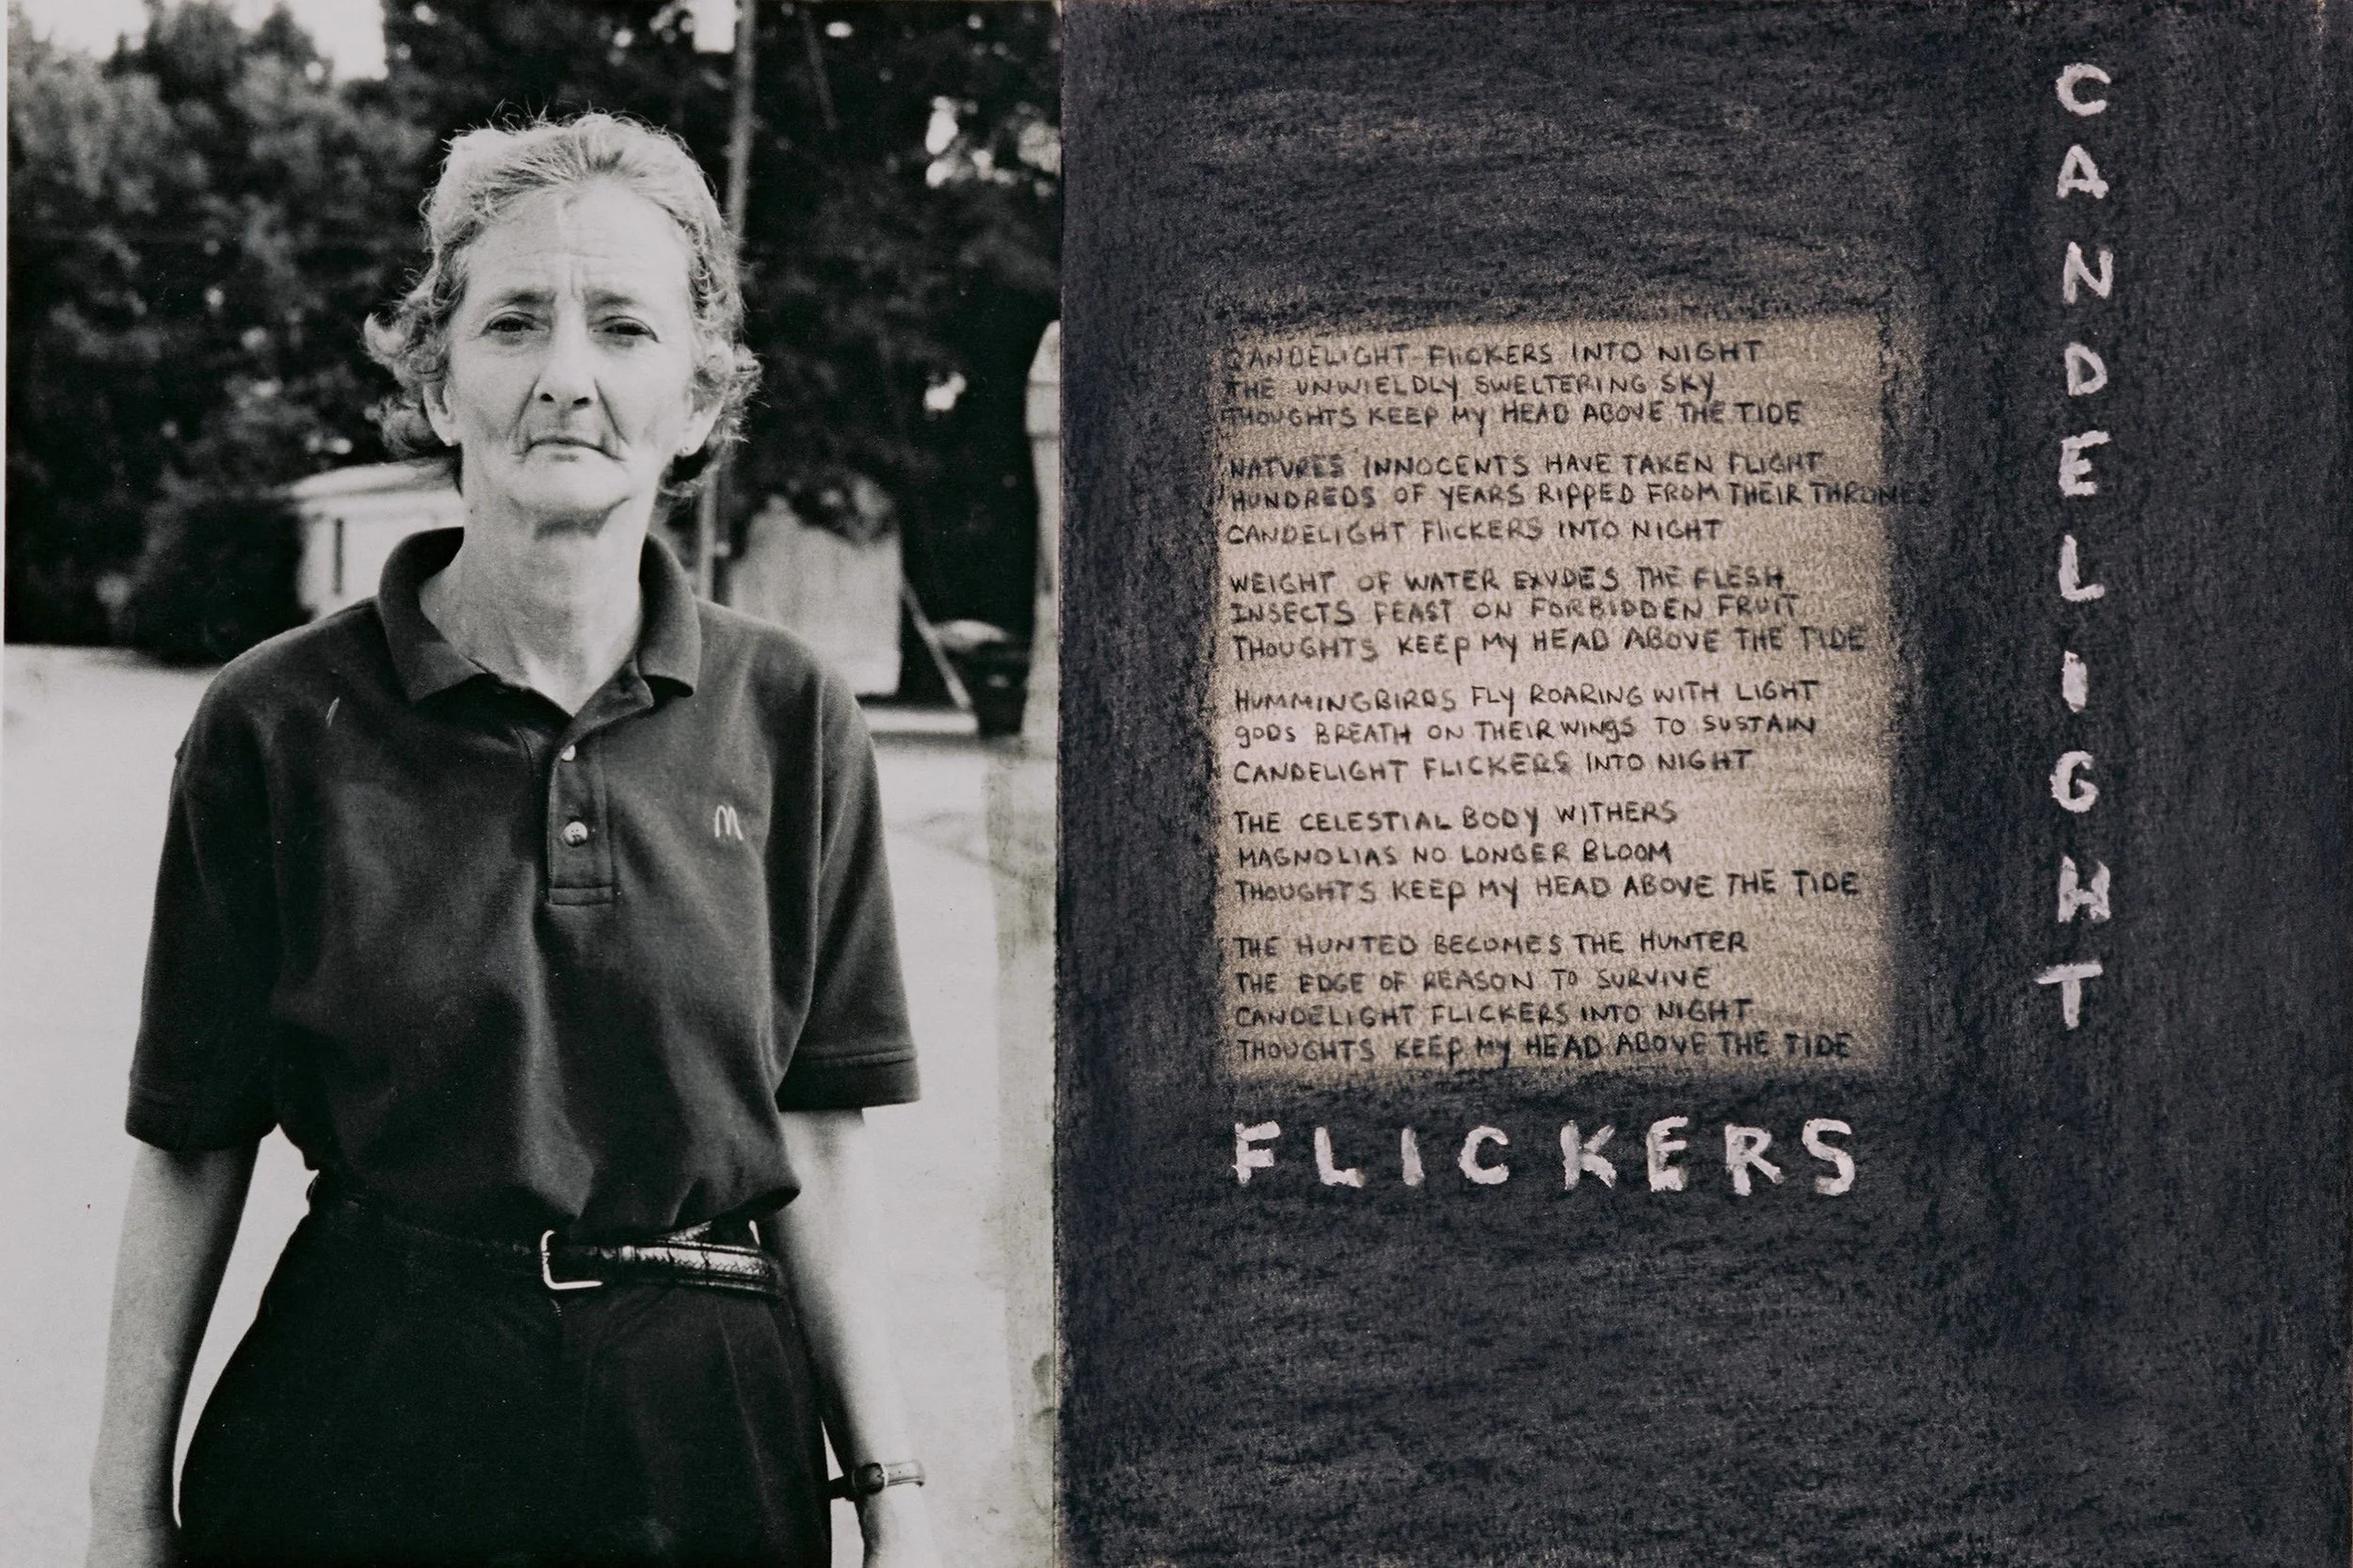 CANDELIGHT FLICKERS INTO NIGHT
THE UNWIELDLY SWELTERING SKY
THOUGHTS KEEP MY HEAD ABOVE THE TIDE
NATURES INNOCENTS HAVE TAKEN FLIGHT
HUNDREDS OF YEARS RIPPED FROM THEIR THRONES
CANDELIGHT FLICKERS INTO NIGHT
WEIGHT OF WATER EXUDES THE FLESH
INSECTS FEAST ON FORBIDDEN FRUIT
THOUGHTS KEEP MY HEAD ABOVE THE TIDE
HUMMINGBIRDS FLY ROARING WITH LIGHT
GODS BREATH ON THEIR WINGS TO SUSTAIN
CANDELIGHT FLICKERS INTO NIGHT
THE CELESTIAL BODY WITHERS
MAGNOLIAS NO LONGER BLOOM
THOUGHTS KEEP MY HEAD ABOVE THE TIDE
THE HUNTED BECOMES THE HUNTER
THE EDGE OF REASON TO SURVIVE
CANDELIGHT FLICKERS INTO NIGHT
THOUGHTS KEEP MY HEAD ABOVE THE TIDE
CANDELIGHT
FLICKERS
M